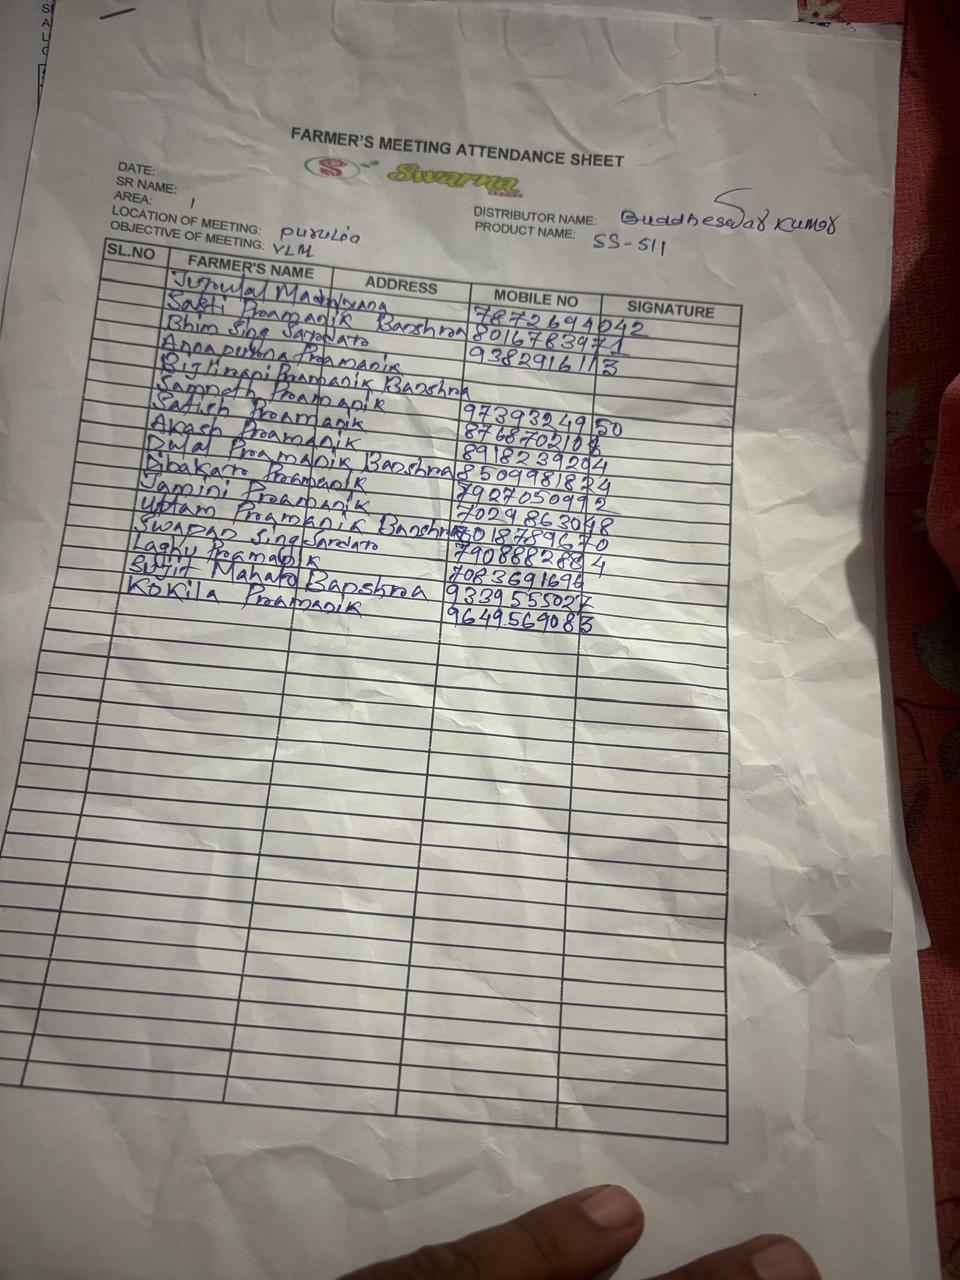 FARMER'S MEETING ATTENDANCE SHEET
S Swarna
DATE:
SR NAME:
AREA: 1
LOCATION OF MEETING: Purulia
OBJECTIVE OF MEETING: VLM
DISTRIBUTOR NAME: Buddheswar Kumar
PRODUCT NAME: SS-511
SL.NO FARMER'S NAME ADDRESS MOBILE NO SIGNATURE
7872694042
Sakti Pramanik Banshra 8016783971
Bhim Sing Sardato 9382916113
Annapurna Pramanik
Bijlirani Pramanik Banshra
Pramanik 9739324950
Satish Pramanik
Akash Pramanik 8918239204
Dulal Pramanik Banshra 8509981824
Dibakar Pramanik 7927050992
Jamini Pramanik 7029863048
Uttam Pramanik Banshra
Swapan Sing Sardato 7908882884
Laghu Pramanik 7083691696
Sujit Mahato Banshra 9339555027
Kokila Pramanik 9649569083